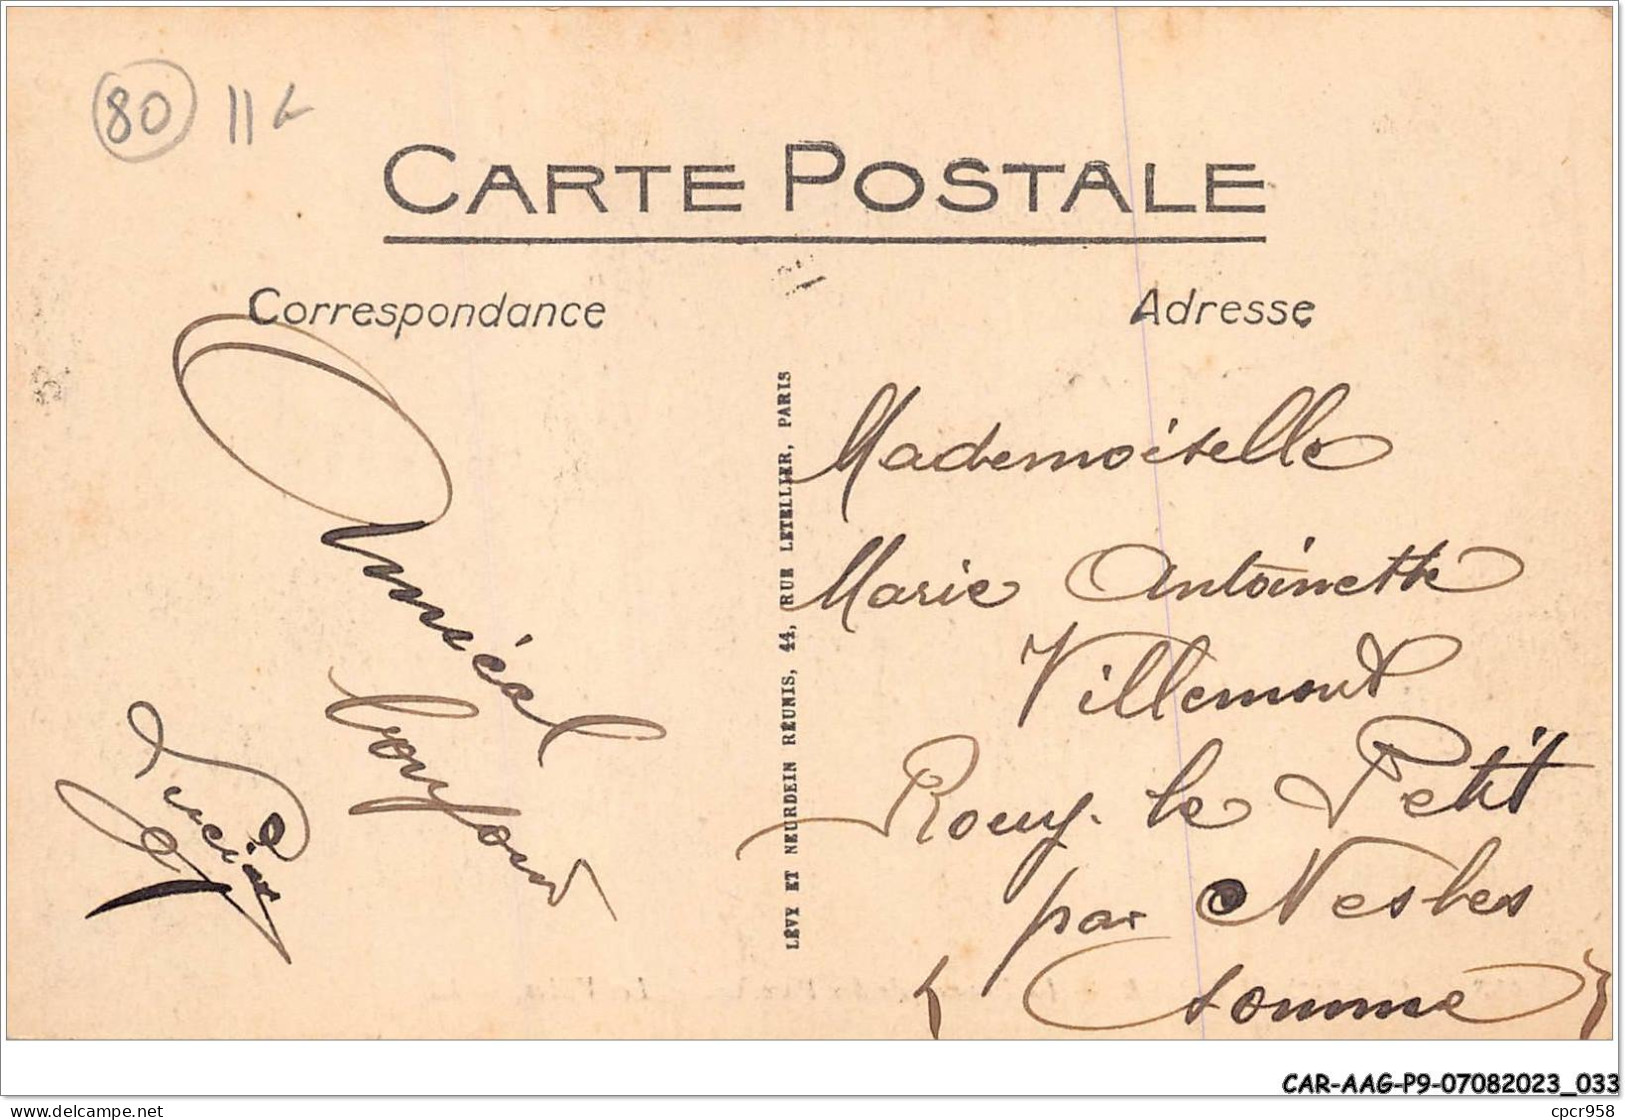 80 11€
CARTE POSTALE
Correspondance
Adresse
Amical
bonjour
Lucien
LÉVY ET NEURDEIN RÉUNIS, 44, RUE LETELLIER, PARIS
Mademoiselle
Marie Antoinette
Villemont
Rouy-le Petit
par Nesles
(Somme)
CAR-AAG-P9-07082023_033
delcampe.net
cpcr958